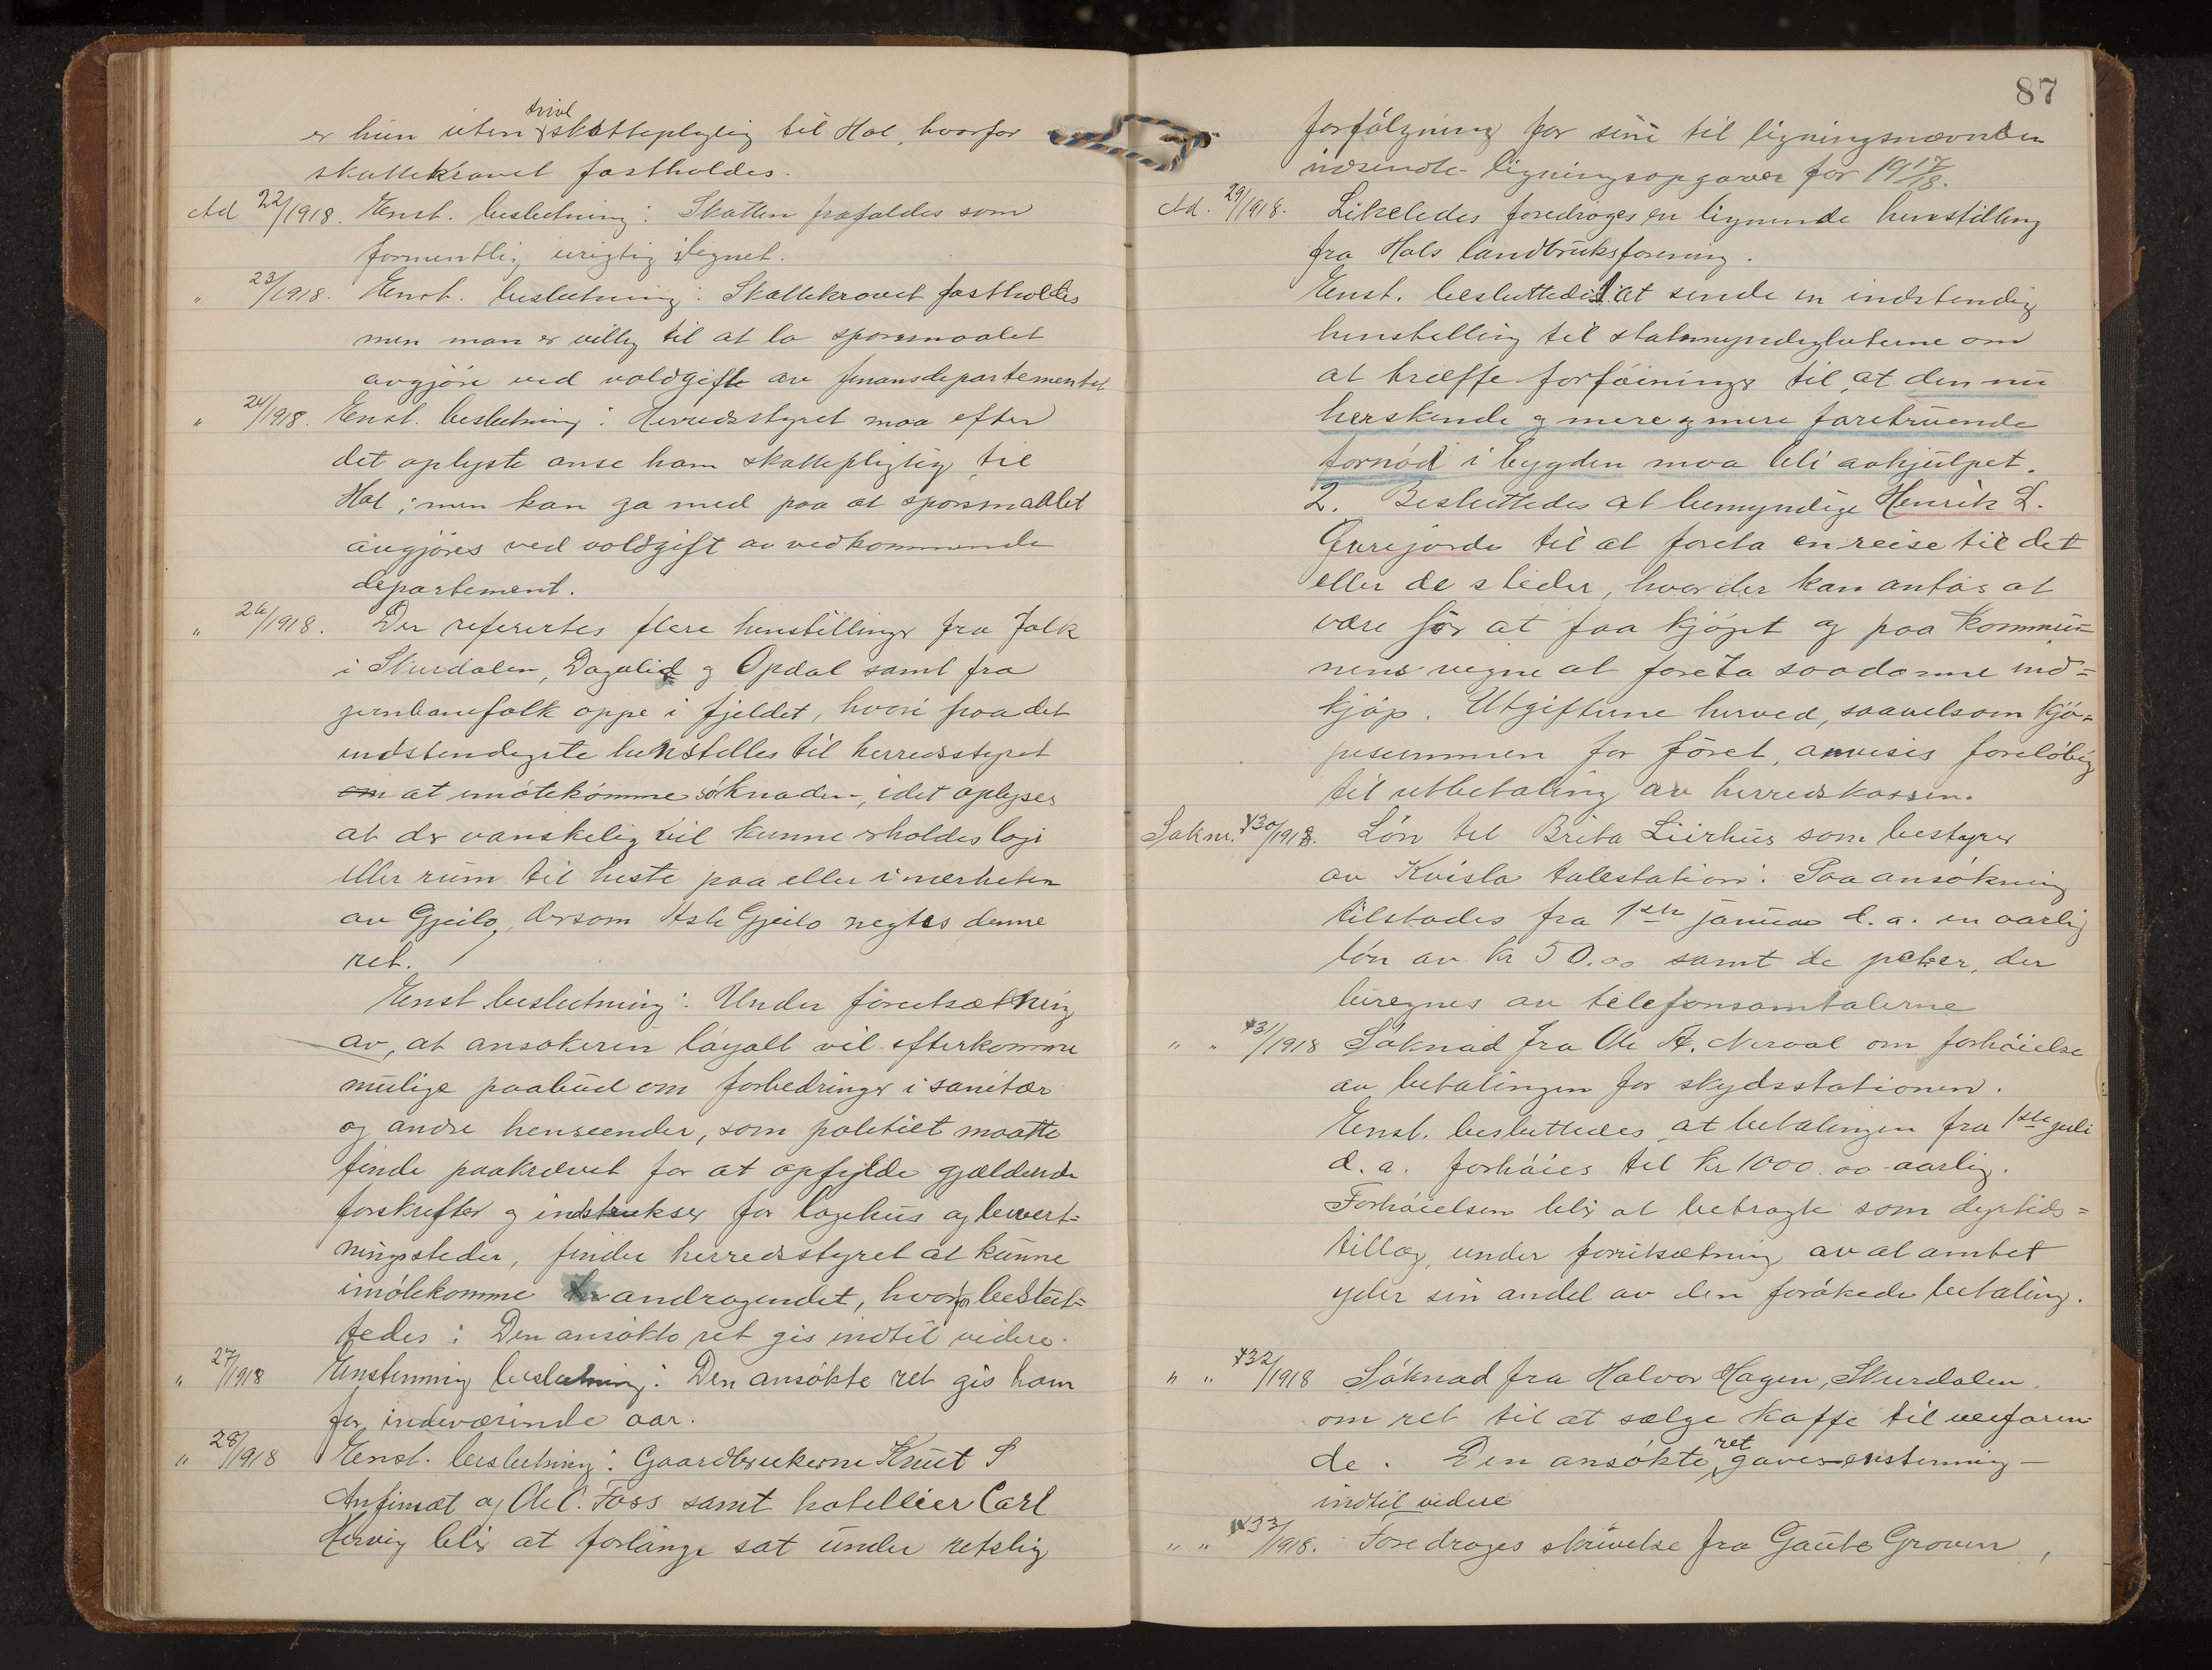 tvivl
er hun uten skatteplegtig til Hol, hvorfor
skattekravet fastholdes.
Ad 22/1918. Enst. beslutning: Skatten frafaldes som
formentlig urigtig ilignet.
" 23/1918. Enst. beslutning: Skattekravet fastholdes
men man er villig til at la sporsmaalet
avgjöre ved voldgifte av finansdepartementet
" 24/1918. Enst. beslutning: Herredsstyret maa efter
det oplyste anse ham skattepligtig til
Hol; men kan ga med paa at sporsmaalet
avgjöres ved voldgift av vedkommende
departement.
" 26/1918. Der referertes flere henstillinger fra folk
i Skurdalen, Dagalid og Opdal samt fra
jernbanefolk oppe i fjeldet, hvori paa det
indstendigste henstilles til herredsstyret
om at imötekomme söknaden, idet oplyses
at der vanskelig vil kunne erholdes logi
eller rum til heste paa eller i nærheten
av Gjeilo, dersom Asle Gjeilo negtes denne
ret.
Enst beslutning: Under forutsætning
av, at ansökeren loyalt vil efterkomme
mulige paabud om forbedringer i sanitær
og andre henseender, som politiet maatte
finde paakrævet for at opfylde gjældende
forskrifter og instrukser for logihus og bevert=
ningssteder, finder herredsstyret at kunne
imötekomme andragendet, hvorfor beslut=
tedes: Den ansökte ret gis indtil videre.
" 27/1918 Enstemmig beslutning: Den ansökte ret gis ham
for indeværende aar.
" 28/1918 Enst. beslutning: Gaardbrukerne Knut S
Anfinset og Ole C. Foss samt hotellier Carl
Hervig blir at forlange sat under retslig
87
forfölgning for sine til ligningsnævnden
indsendte ligningsopgaver for 1917/18.
Ad. 29/1918. Likeledes foredroges en lignende henstilling
fra Hols landbruksforening.
Enst. besluttedes: 1. at sende en indstendig
henstilling til statsmyndigheterne om
at træffe forföininger til, at den nu
herskende og mere og mere faretruende
fornöd i bygden maa bli avhjulpet.
2. Besluttedes at bemyndige Henrik L.
Gurejorde til at foreta en reise til det
eller de steder, hvor der kan antas at
være för at faa kjöpt og paa kommu=
nens vegne at foreta saadanne ind=
kjöp. Utgifterne herved, saavelsom kjö=
pesummen for föret, anvises forelöbig
til utbetaling av herredskassen.
Sak nr. 30/1918. Lön til Brita Liirhus som bestyrer
av Kvisla talestation: Paa ansökning
tilstodes fra 1ste januar d.a. en aarlig
lön av kr 50.00 samt de peker, der
beregnes av telefonsamtalerne
" " 31/1918 Söknad fra Ole A. Neraal om forhöielse
av betalingen for skydsstationen.
Enst. besluttedes at betalingen fra 1ste juli
d.a. forhöies til kr 1000.00 aarlig.
Forhöielsen blir at betragte som dyrtids=
tillæg, under forutsætning av at amtet
yder sin andel av den forökede betaling.
" " 32/1918 Söknad fra Halvor Hagen, Skurdalen
om ret til at sælge kaffe til veifaren=
de. Den ansökte ret gaves enstemmig
indtil videre
" " 33/1918. Foredroges skrivelse fra Gaute Groven,